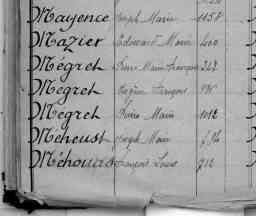 Mayence Joseph Marie 1158
Mazier Edouard Marie
Mégret Pierre Marie François
Mégret Eugène François
Mégret Pierre Marie 1012
Méheust Joseph Marie
Méhouas François Louis 712